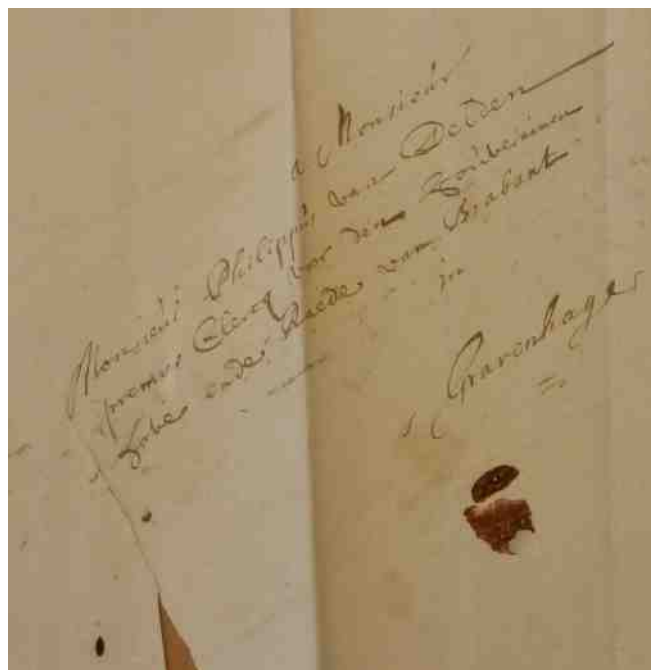 a Monsieur
Monsieur Philippus van Delden
premier Clercq van den Souverainen
Hove ende Raede van Brabant
in
s Gravenhage